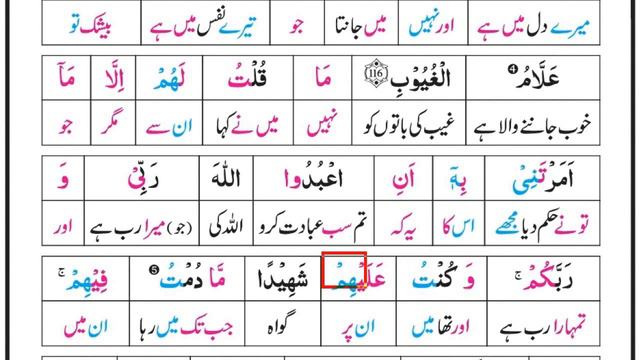 میرے دل میں ہے اور نہیں میں جانتا جو تیرے نفس میں ہے بیشک تو
عَلَّامُ ۴ الْغُيُوْبِ ۝۱۱۶ مَا قُلْتُ لَهُمْ اِلَّا مَاۤ
خوب جاننے والا ہے غیب کی باتوں کو نہیں میں نے کہا ان سے مگر جو
اَمَرْتَنِيْ بِهٖۤ اَنِ اعْبُدُوا اللّٰهَ رَبِّيْ وَ
تو نے حکم دیا مجھے اس کا یہ کہ تم سب عبادت کرو اللہ کی (جو) میرا رب ہے اور
رَبَّكُمْ ۚ وَ كُنْتُ عَلَيْهِمْ شَهِيْدًا مَّا دُمْتُ ۵ فِيْهِمْ ۚ
تمہارا رب ہے اور تھا میں ان پر گواہ جب تک میں رہا ان میں